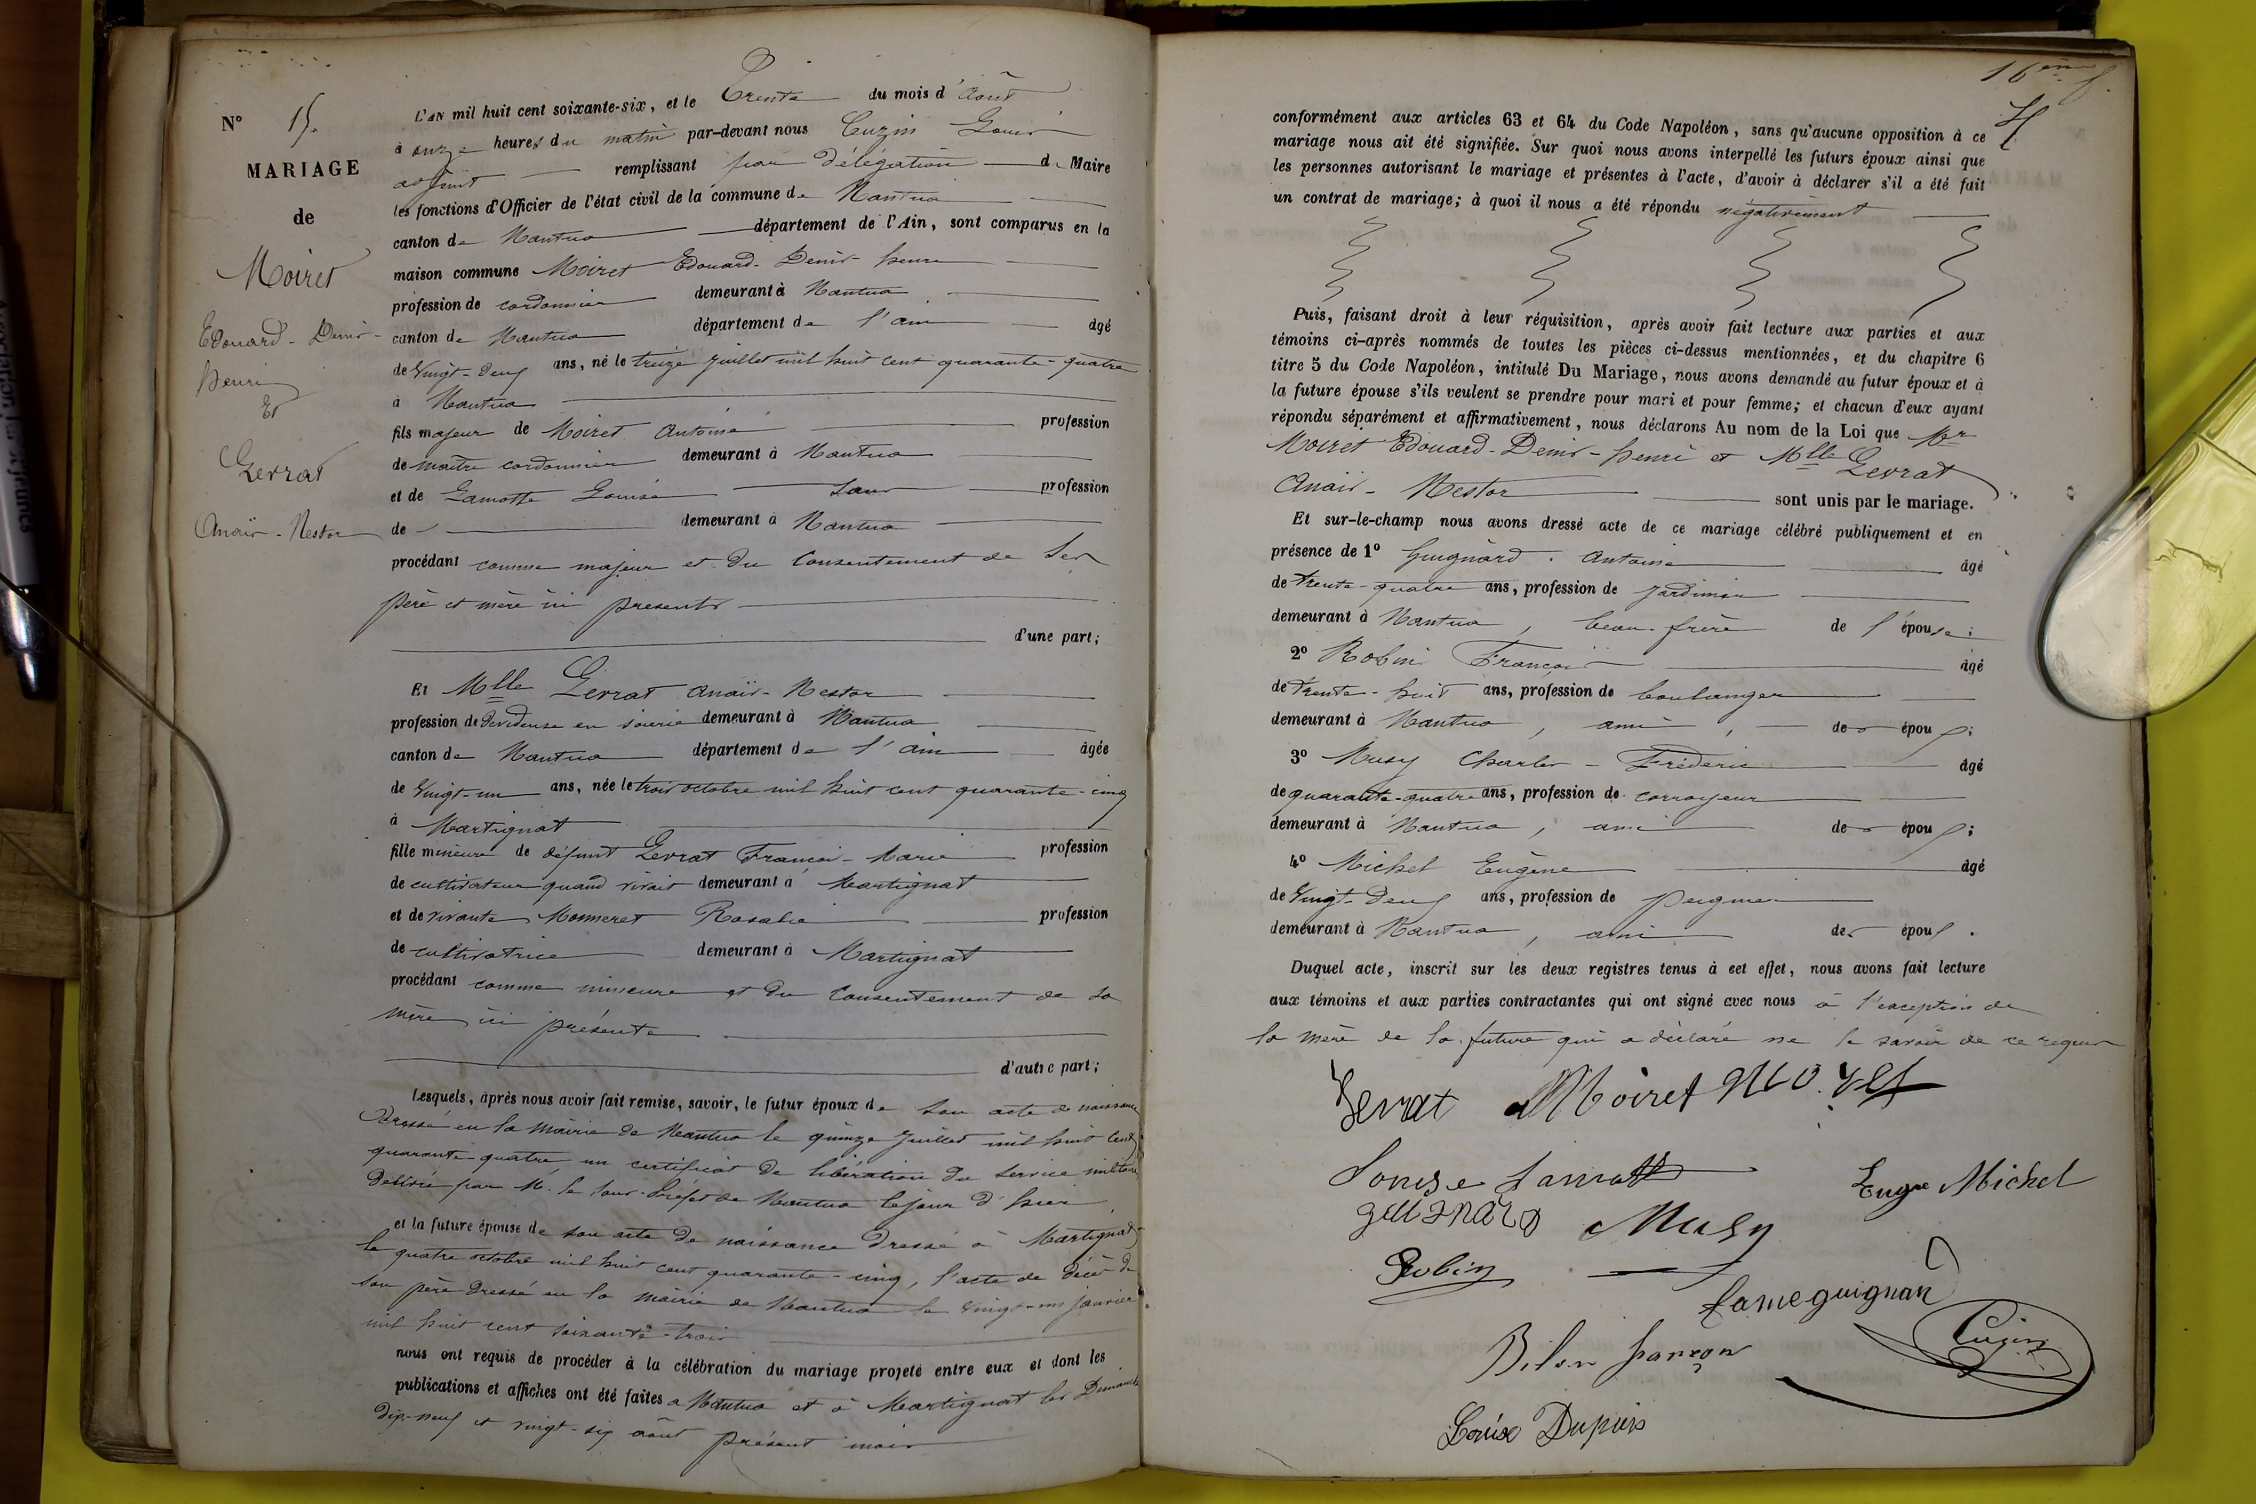 N° 15.
MARIAGE
de
Moiret
Edouard - Denis -
henri
Et
Levrat
Anaïs - Nestor
L'AN mil huit cent soixante-six, et le Trente du mois d'Août
à onze heures du matin par-devant nous Cuzin Louis
adjoint remplissant par délégation du Maire
les fonctions d'Officier de l'état civil de la commune de Nantua
canton de Nantua département de l'Ain, sont comparus en la
maison commune Moiret Edouard - Denis - henri
profession de cordonnier demeurant à Nantua
canton de Nantua département de l'ain âgé
de Vingt-deux ans, né le treize juillet mil huit cent quarante-quatre
à Nantua
fils majeur de Moiret Antoine profession
de maître cordonnier demeurant à Nantua
et de Lamotte Louise sans profession
de demeurant à Nantua
procédant comme majeur et du Consentement de ses
père et mère ici présents
d'une part;
Et Mlle Levrat Anaïs - Nestor
profession de dévideuse en soierie demeurant à Nantua
canton de Nantua département de l'ain âgée
de Vingt-un ans, née le trois octobre mil huit cent quarante-cinq
à Martignat
fille mineure de défunt Levrat François - Marie profession
de cultivateur quand vivait demeurant à Martignat
et de vivante Monneret Rosalie profession
de cultivatrice demeurant à Martignat
procédant comme mineure et du Consentement de sa
mère ici présente
d'autre part;
Lesquels, après nous avoir fait remise, savoir, le futur époux de son acte de naissance
dressé en la Mairie de Nantua le quinze juillet mil huit cent
quarante-quatre un certificat de libération du service militaire
délivré par M. le sous-Préfet de Nantua le jour d'hier
et la future épouse de son acte de naissance dressé à Martignat
le quatre octobre mil huit cent quarante-cinq, l'acte de décès de
son père dressé en la mairie de Nantua le vingt-un janvier
mil huit cent soixante-trois
nous ont requis de procéder à la célébration du mariage projeté entre eux et dont les
publications et affiches ont été faites à Nantua et à Martignat les Dimanche
dix-neuf et vingt-six août présent mois
16ème f.
conformément aux articles 63 et 64 du Code Napoléon, sans qu'aucune opposition à ce
mariage nous ait été signifiée. Sur quoi nous avons interpellé les futurs époux ainsi que
les personnes autorisant le mariage et présentes à l'acte, d'avoir à déclarer s'il a été fait
un contrat de mariage; à quoi il nous a été répondu négativement
Puis, faisant droit à leur réquisition, après avoir fait lecture aux parties et aux
témoins ci-après nommés de toutes les pièces ci-dessus mentionnées, et du chapitre 6
titre 5 du Code Napoléon, intitulé Du Mariage, nous avons demandé au futur époux et à
la future épouse s'ils veulent se prendre pour mari et pour femme; et chacun d'eux ayant
répondu séparément et affirmativement, nous déclarons Au nom de la Loi que Mr
Moiret Edouard - Denis - henri et Mlle Levrat
Anaïs - Nestor sont unis par le mariage.
Et sur-le-champ nous avons dressé acte de ce mariage célébré publiquement et en
présence de 1° Guignard Antoine âgé
de trente-quatre ans, profession de jardinier
demeurant à Nantua, beau-frère de l'épouse;
2° Robin François âgé
de trente-huit ans, profession de boulanger
demeurant à Nantua, ami, des époux;
3° Musy Charles - Fréderic âgé
de quarante-quatre ans, profession de corroyeur
demeurant à Nantua, ami des époux;
4° Michel Eugène âgé
de Vingt-deux ans, profession de peignier
demeurant à Nantua, ami des époux.
Duquel acte, inscrit sur les deux registres tenus à cet effet, nous avons fait lecture
aux témoins et aux parties contractantes qui ont signé avec nous à l'exception de
la mère de la future qui a déclaré ne le savoir de ce requise
Levrat Moiret Moiret
Louise Lamotte
Eugne Michel
guignard Musy
Robin
fameguignar
Cuzin
Louise Dupuis